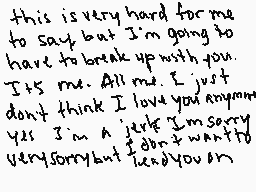 this is very hard for me
to say but I'm going to
have to break up with you.
It's me. All me. I just
don't think I love you anymore
yes I'm a jerk I'm sorry
very sorry but I don't want to
lead you on